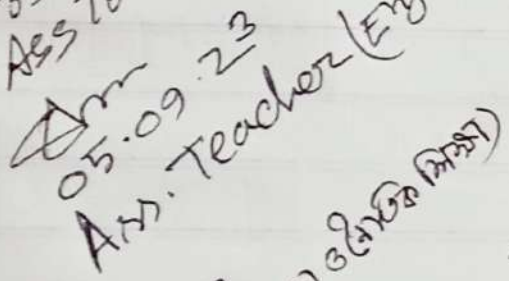 Ass
05.09.23
Ass. Teacher (Eng
ও নৈতিক শিক্ষা)